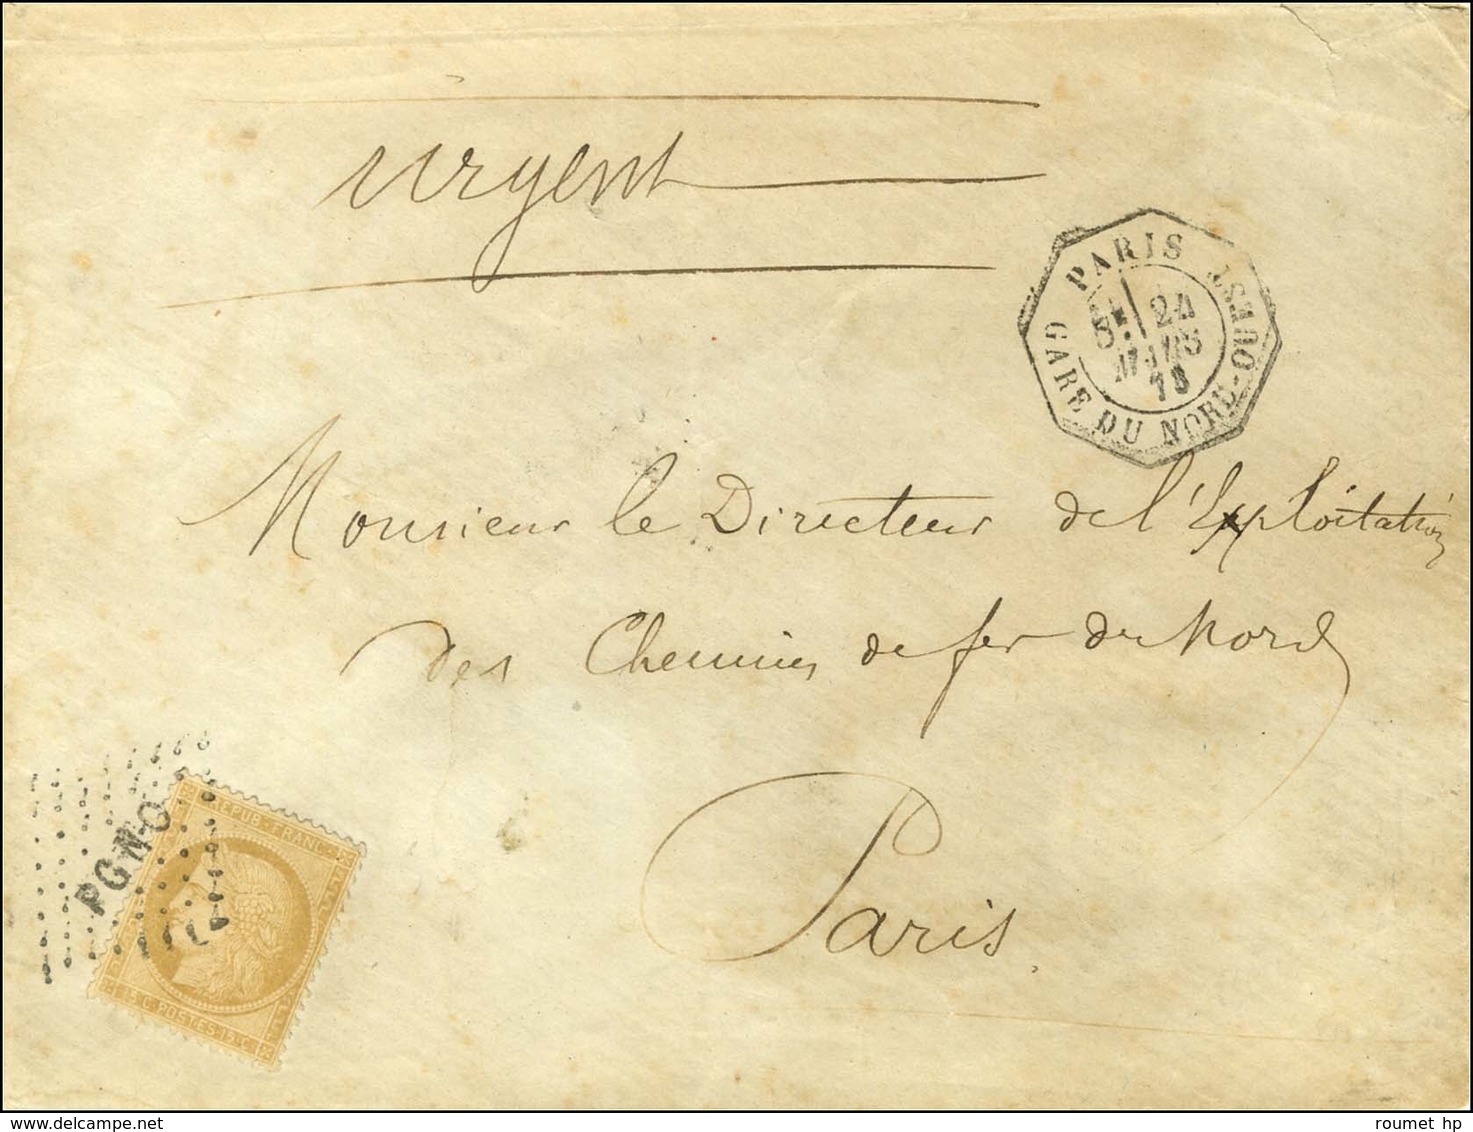 urgent
PARIS
5E 24
MARS
73
GARE DU NORD-OUEST
Monsieur le Directeur de l'Exploitation
des Chemins de fer du Nord
Paris
PGNO
REPUB·FRANC
15 C·POSTES·15·C
roumet hp